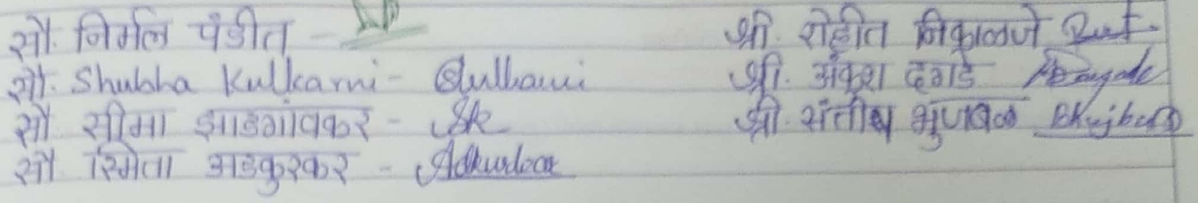 सौ. निर्मल पंडीत -
सौ. Shubha Kulkarni - Qulkarni
सौ सीमा झाडगांवकर - Sk
सौ. स्मिता अडकुरकर - Adkurkar
श्री. रोहीत निकाळजे
श्री. अंकुश दगडे
श्री. संतोष भुजबळ Bhujbal